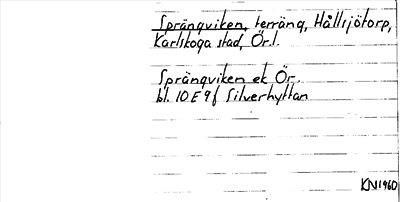 Sprängviken, terräng, Hållsjötorp,
Karlskoga stad, Ör.l.
Sprängviken ek Ör.
bl. 10E9f Silverhyttan
KN1960